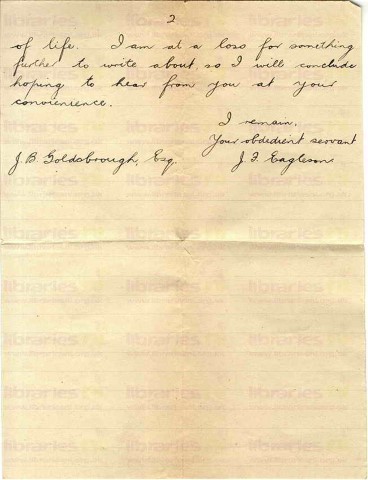 2
of life. I am at a loss for something
further to write about, so I will conclude
hoping to hear from you at your
convienience.
I remain,
Your obdedient servant
J. B. Goldsbrough, Esq. J. F. Eagleson